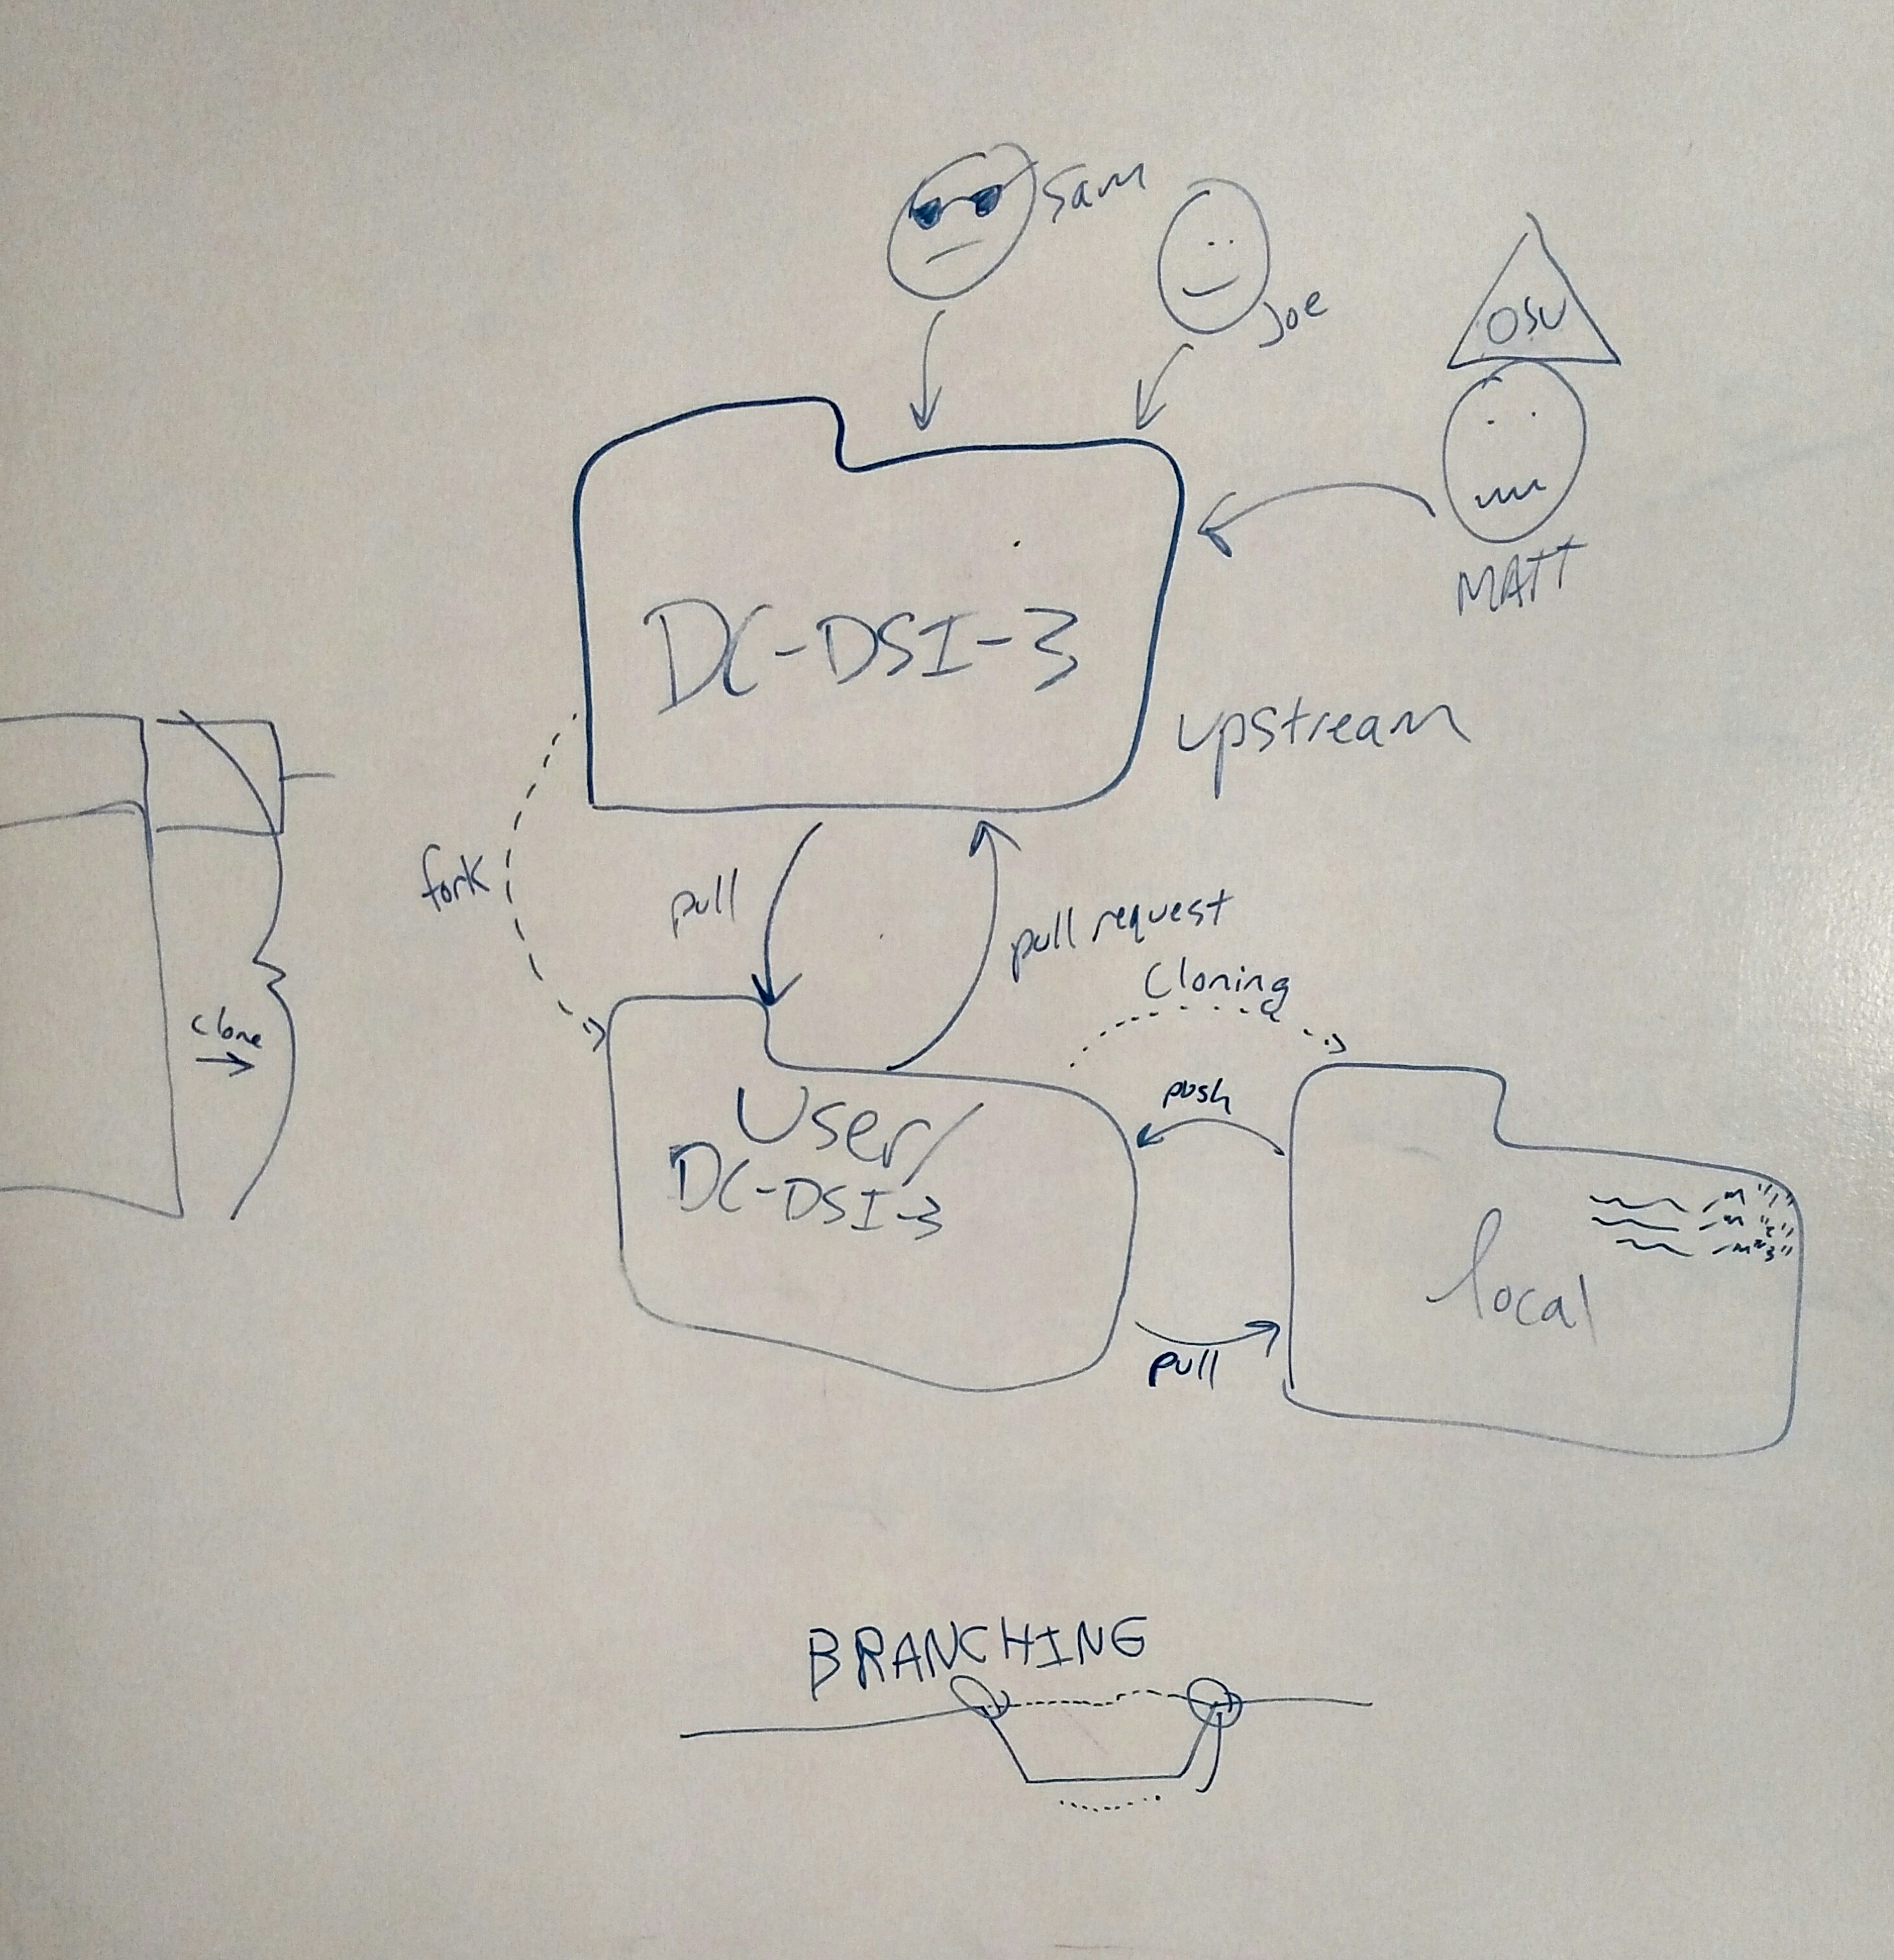 Sam
Joe
OSU
MATT
DC-DSI-3
upstream
fork
pull
pull request
Cloning
clone
push
User/
DC-DSI-3
-m "1"
-m "2"
-m "3"
local
pull
BRANCHING